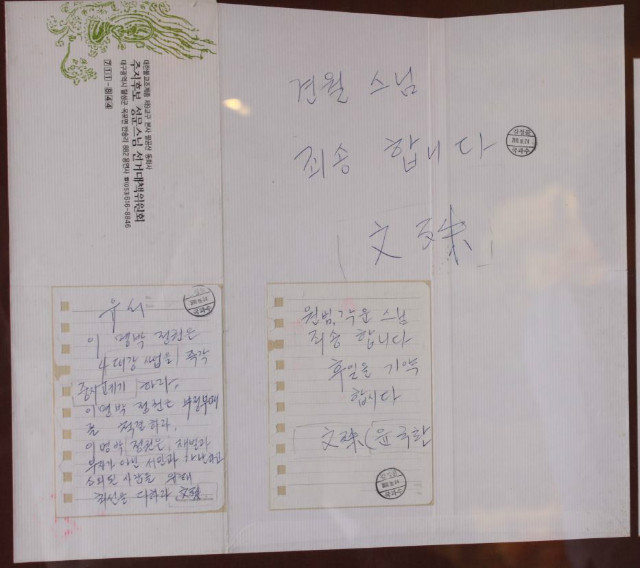 대한불교조계종 제9교구 본사 팔공산 동화사
주지후보 성문스님 선거대책위원회
대구광역시 달성군 옥포면 반송리 882 용연사 ☎(053)616-8846
견월 스님
죄송 합니다
(文殊)
유서
이명박 정권은
4대강 사업을 즉각
중지 폐기 하라.
이명박 정권은 부정부패
를 척결하라.
이명박 정권은 재벌과
부자가 아닌 서민과 가난하고
소외된 사람을 위해
최선을 다하라 文殊
원범, 각운 스님
죄송 합니다
후일을 기약
합니다
文殊(윤국환